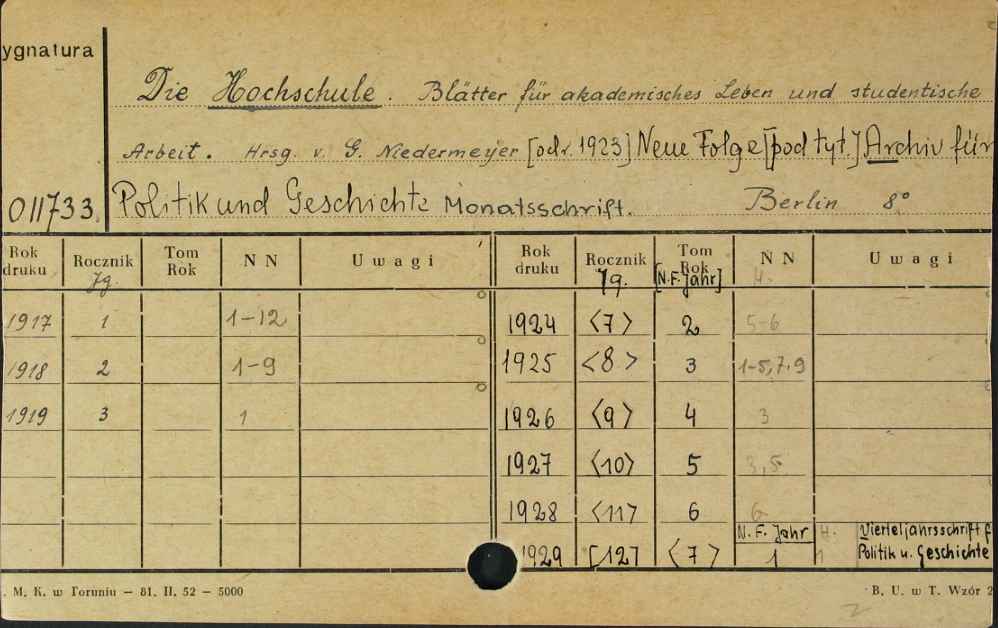 ygnatura
Die Hochschule. Blätter für akademisches Leben und studentische
Arbeit. Hrsg. v. G. Niedermeyer [od r. 1923] Neue Folge [pod tyt.] Archiv für
011733 Politik und Geschichte Monatsschrift. Berlin 8°
Rok druku Rocznik Jg. Tom Rok NN Uwagi Rok druku Rocznik Jg. Tom Rok [N.F. Jahr] NN H. Uwagi
1917 1 1-12 1924 <7> 2 5-6
1918 2 1-9 1925 <8> 3 1-5,7.9
1919 3 1 1926 <9> 4 3
1927 <10> 5 3,5
1928 <11> 6 6
N.F. Jahr H. Vierteljahrsschrift f
1929 [12] <7> 1 1 Politik u. Geschichte
. M. K. w Toruniu — 81. II. 52 — 5000 B. U. w T. Wzór 2
2